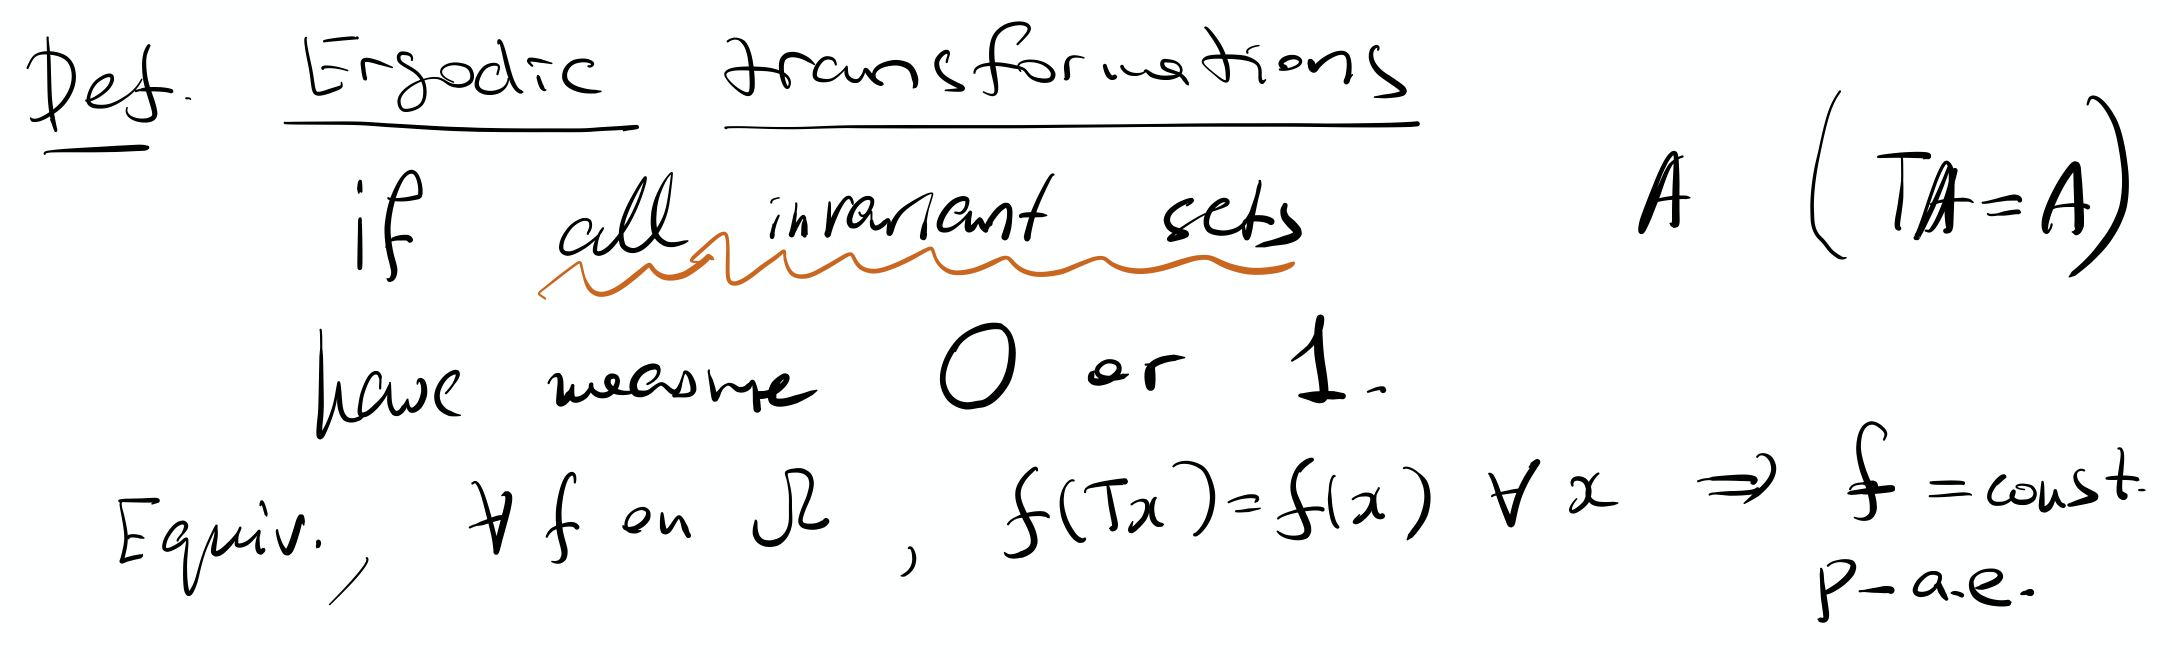 Def. Ergodic transformations
if all invariant sets A (TA = A)
have measure 0 or 1.
Equiv., ∀ f on Ω, f(Tx) = f(x) ∀ x ⇒ f = const
P-a.e.